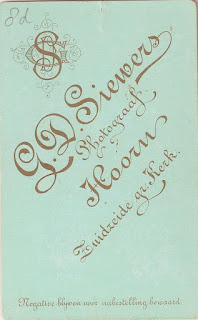 8d
GS
G. D. Siewers
Photograaf.
Hoorn
Zuidzeide gr. Kerk.
Negative blijven voor nabestelling bewaard.